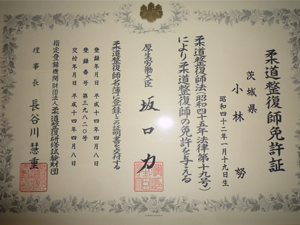 柔道整復師免許証
茨城県
小林 努
昭和四十二年一月十九日生
柔道整復師法(昭和四十五年法律第十九号)
により柔道整復師の免許を与える
厚生労働大臣 坂口 力
柔道整復師名簿に登録し免許証を交付する
登録年月日 平成十四年四月八日
登録番号 第三九八二〇号
交付年月日 平成十四年四月八日
指定登録機関財団法人柔道整復研修試験財団
理事長 長谷川慧重